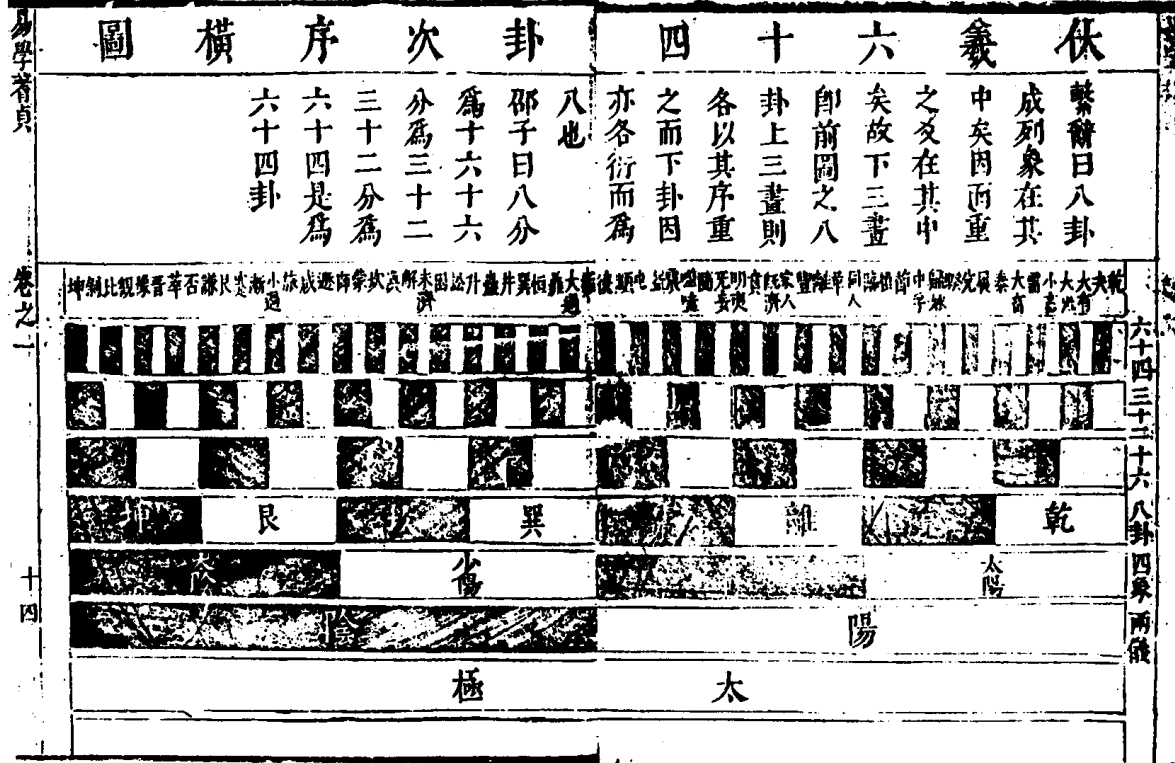 伏羲六十四卦次序橫圖
繫辭曰八卦
成列象在其
中矣因而重
之爻在其中
矣故下三畫
即前圖之八
卦上三畫則
各以其序重
之而下卦因
亦各衍而爲
八也
邵子曰八分
爲十六十六
分爲三十二
三十二分爲
六十四是爲
六十四卦
乾
夬
大有
大壯
小畜
需
大畜
泰
履
兌
歸妹
中孚
節
損
臨
同人
革
離
豐
家人
既濟
賁
明夷
无妄
隨
噬嗑
震
益
屯
頤
復
姤
大過
鼎
恒
巽
井
蠱
升
訟
困
未濟
解
渙
坎
蒙
師
遯
咸
旅
小過
漸
蹇
艮
謙
否
萃
晉
豫
觀
比
剝
坤
六十四
三十二
十六
八卦
四象
兩儀
乾
離
巽
艮
坤
太陽
少陽
太陰
陽
陰
太極
易學蓍貞
卷之一
十四